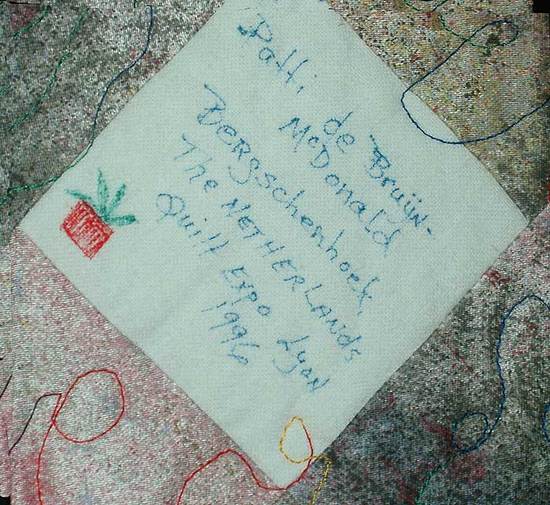 Patti de Bruÿn-
McDonald
Bergschenhoek,
The NETHERLANDS
Quilt Expo Lyon
1996